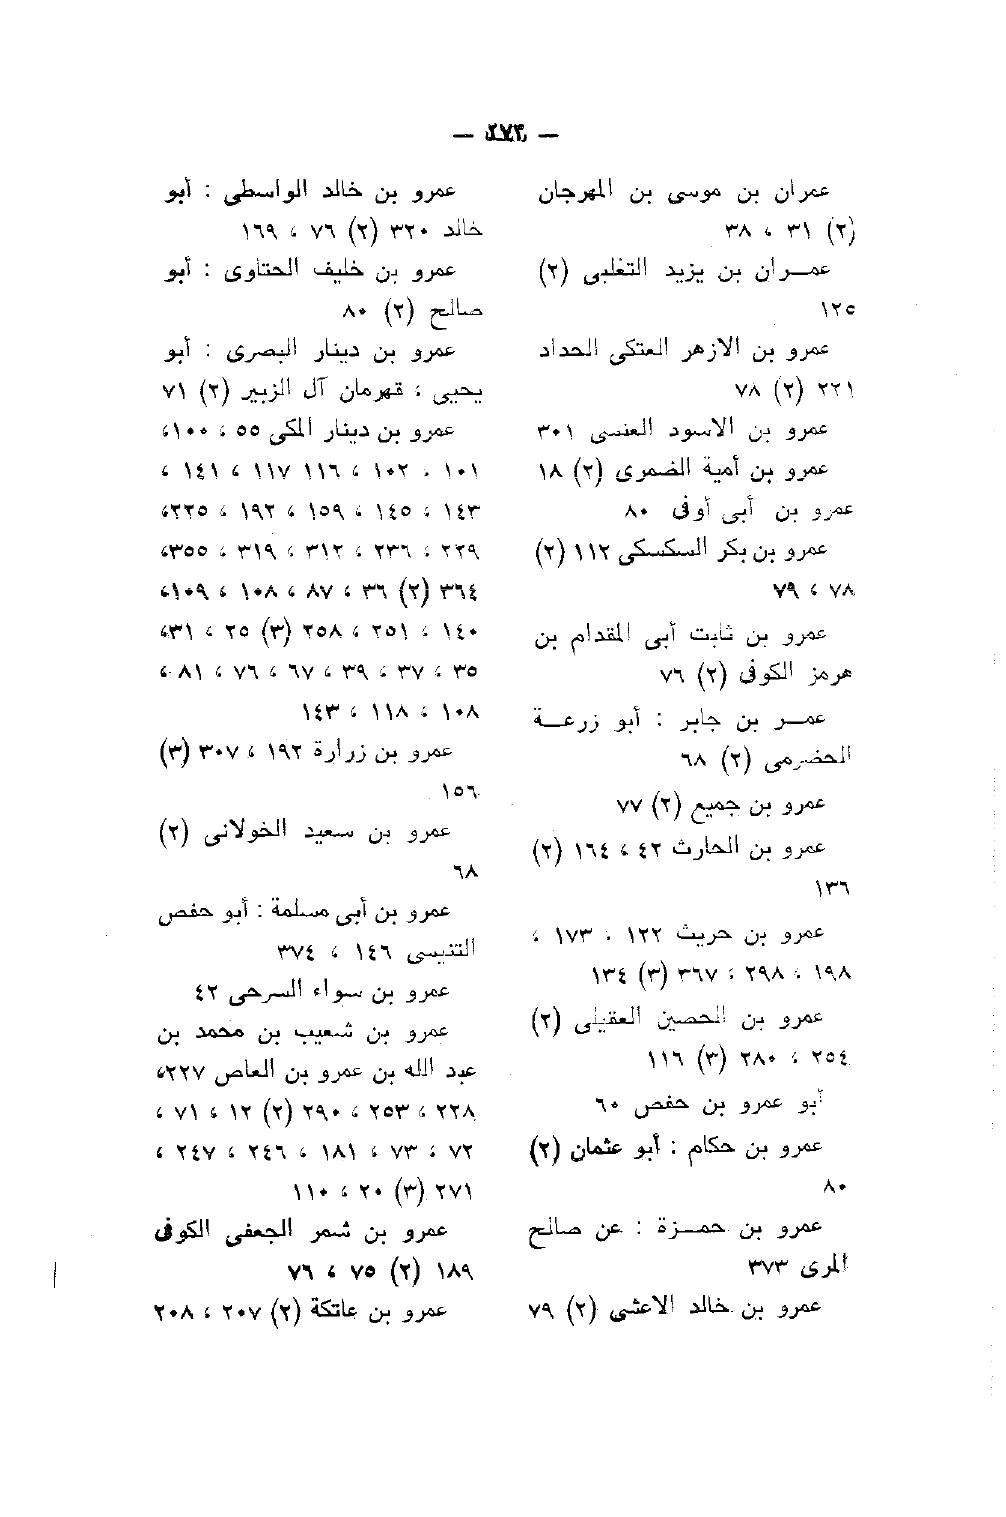 — ٢٧٢ —
عمران بن موسى بن المهرجان
(٢) ٣١ ، ٣٨
عمـــران بن يزيد التغلبى (٢)
١٢٥
عمرو بن الازهر العتكى الحداد
٢٢١ (٢) ٧٨
عمرو بن الاسود العنسى ٣٠١
عمرو بن أمية الضمرى (٢) ١٨
عمرو بن أبى أوفى ٨٠
عمرو بن بكر السكسكى ١١٢ (٢)
٧٨ ، ٧٩
عمرو بن ثابت أبى المقدام بن
هرمز الكوفى (٢) ٧٦
عمـــر بن جابر : أبو زرعـــة
الحضرمى (٢) ٦٨
عمرو بن جميع (٢) ٧٧
عمرو بن الحارث ٤٢ ، ١٦٤ (٢)
١٣٦
عمرو بن حريث ١٢٢ ، ١٧٣ ،
١٩٨ ، ٢٩٨ ، ٣٦٧ (٣) ١٣٤
عمرو بن الحصين العقيلى (٢)
٢٥٤ ، ٢٨٠ (٣) ١١٦
أبو عمرو بن حفص ٦٠
عمرو بن حكام : أبو عثمان (٢)
٨٠
عمرو بن حمـــزة : عن صالح
المرى ٣٧٣
عمرو بن خالد الاعشى (٢) ٧٩
عمرو بن خالد الواسطى : أبو
خالد ٣٢٠ (٢) ٧٦ ، ١٦٩
عمرو بن خليف الحتاوى : أبو
صالح (٢) ٨٠
عمرو بن دينار البصرى : أبو
يحيى ؛ قهرمان آل الزبير (٢) ٧١
عمرو بن دينار المكى ٥٥ ، ١٠٠،
١٠١ ، ١٠٢ ، ١١٦ ١١٧ ، ١٤١ ،
١٤٣ ، ١٤٥ ، ١٥٩ ، ١٩٢ ، ٢٢٥،
٢٢٩ ، ٢٣٦ ، ٣١٢ ، ٣١٩ ، ٣٥٥،
٣٦٤ (٢) ٣٦ ، ٨٧ ، ١٠٨ ، ١٠٩،
١٤٠ ، ٢٥١ ، ٢٥٨ (٣) ٢٥ ، ٣١،
٣٥ ، ٣٧ ، ٣٩ ، ٦٧ ، ٧٦ ، ٨١ ،
١٠٨ ، ١١٨ ، ١٤٣
عمرو بن زرارة ١٩٢ ، ٣٠٧ (٣)
١٥٦
عمرو بن سعيد الخولانى (٢)
٦٨
عمرو بن أبى مسلمة : أبو حفص
التنيسى ١٤٦ ، ٣٧٤
عمرو بن سواء السرحى ٤٢
عمرو بن شعيب بن محمد بن
عبد الله بن عمرو بن العاص ٢٢٧،
٢٢٨ ، ٢٥٣ ، ٢٩٠ (٢) ١٢ ، ٧١ ،
٧٢ ، ٧٣ ، ١٨١ ، ٢٤٦ ، ٢٤٧ ،
٢٧١ (٣) ٢٠ ، ١١٠
عمرو بن شمر الجعفى الكوفى
١٨٩ (٢) ٧٥ ، ٧٦
عمرو بن عاتكة (٢) ٢٠٧ ، ٢٠٨